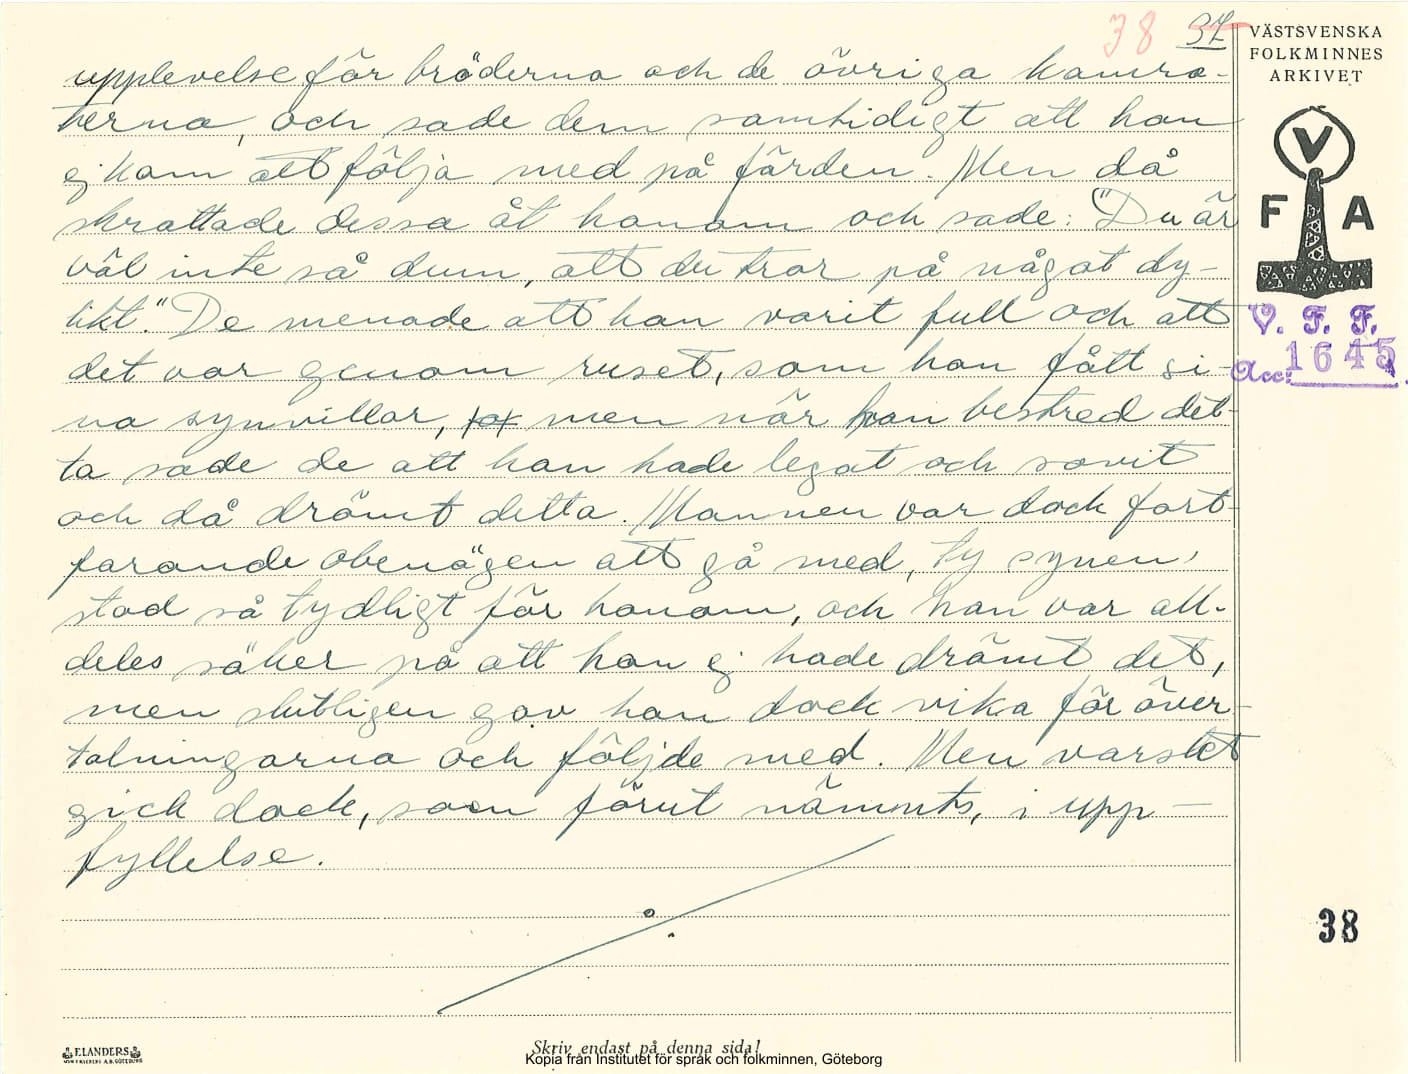 38 37
VÄSTSVENSKA
FOLKMINNES
ARKIVET
V
F A
V. F. F.
Acc: 1645
upplevelse för bröderna och de övriga kamra-
terna, och sade dem samtidigt att han
ej kom att följa med på färden. Men då
skrattade dessa åt honom och sade: "Du är
väl inte så dum, att du tror på något dy-
likt." De menade att han varit full och att
det var genom ruset, som han fått si-
na synvillor, men när han bestred det-
ta sade de att han hade legat och sovit
och då drömt detta. Mannen var dock fort-
farande obenägen att gå med, ty synen
stod så tydligt för honom, och han var all-
deles säker på att han ej hade drömt det,
men slutligen gav han dock vika för över-
talningarna och följde med. Men varslet
gick dock, som förut nämnts, i upp-
fyllelse.
38
ELANDERS
Skriv endast på denna sida!
Kopia från Institutet för språk och folkminnen, Göteborg